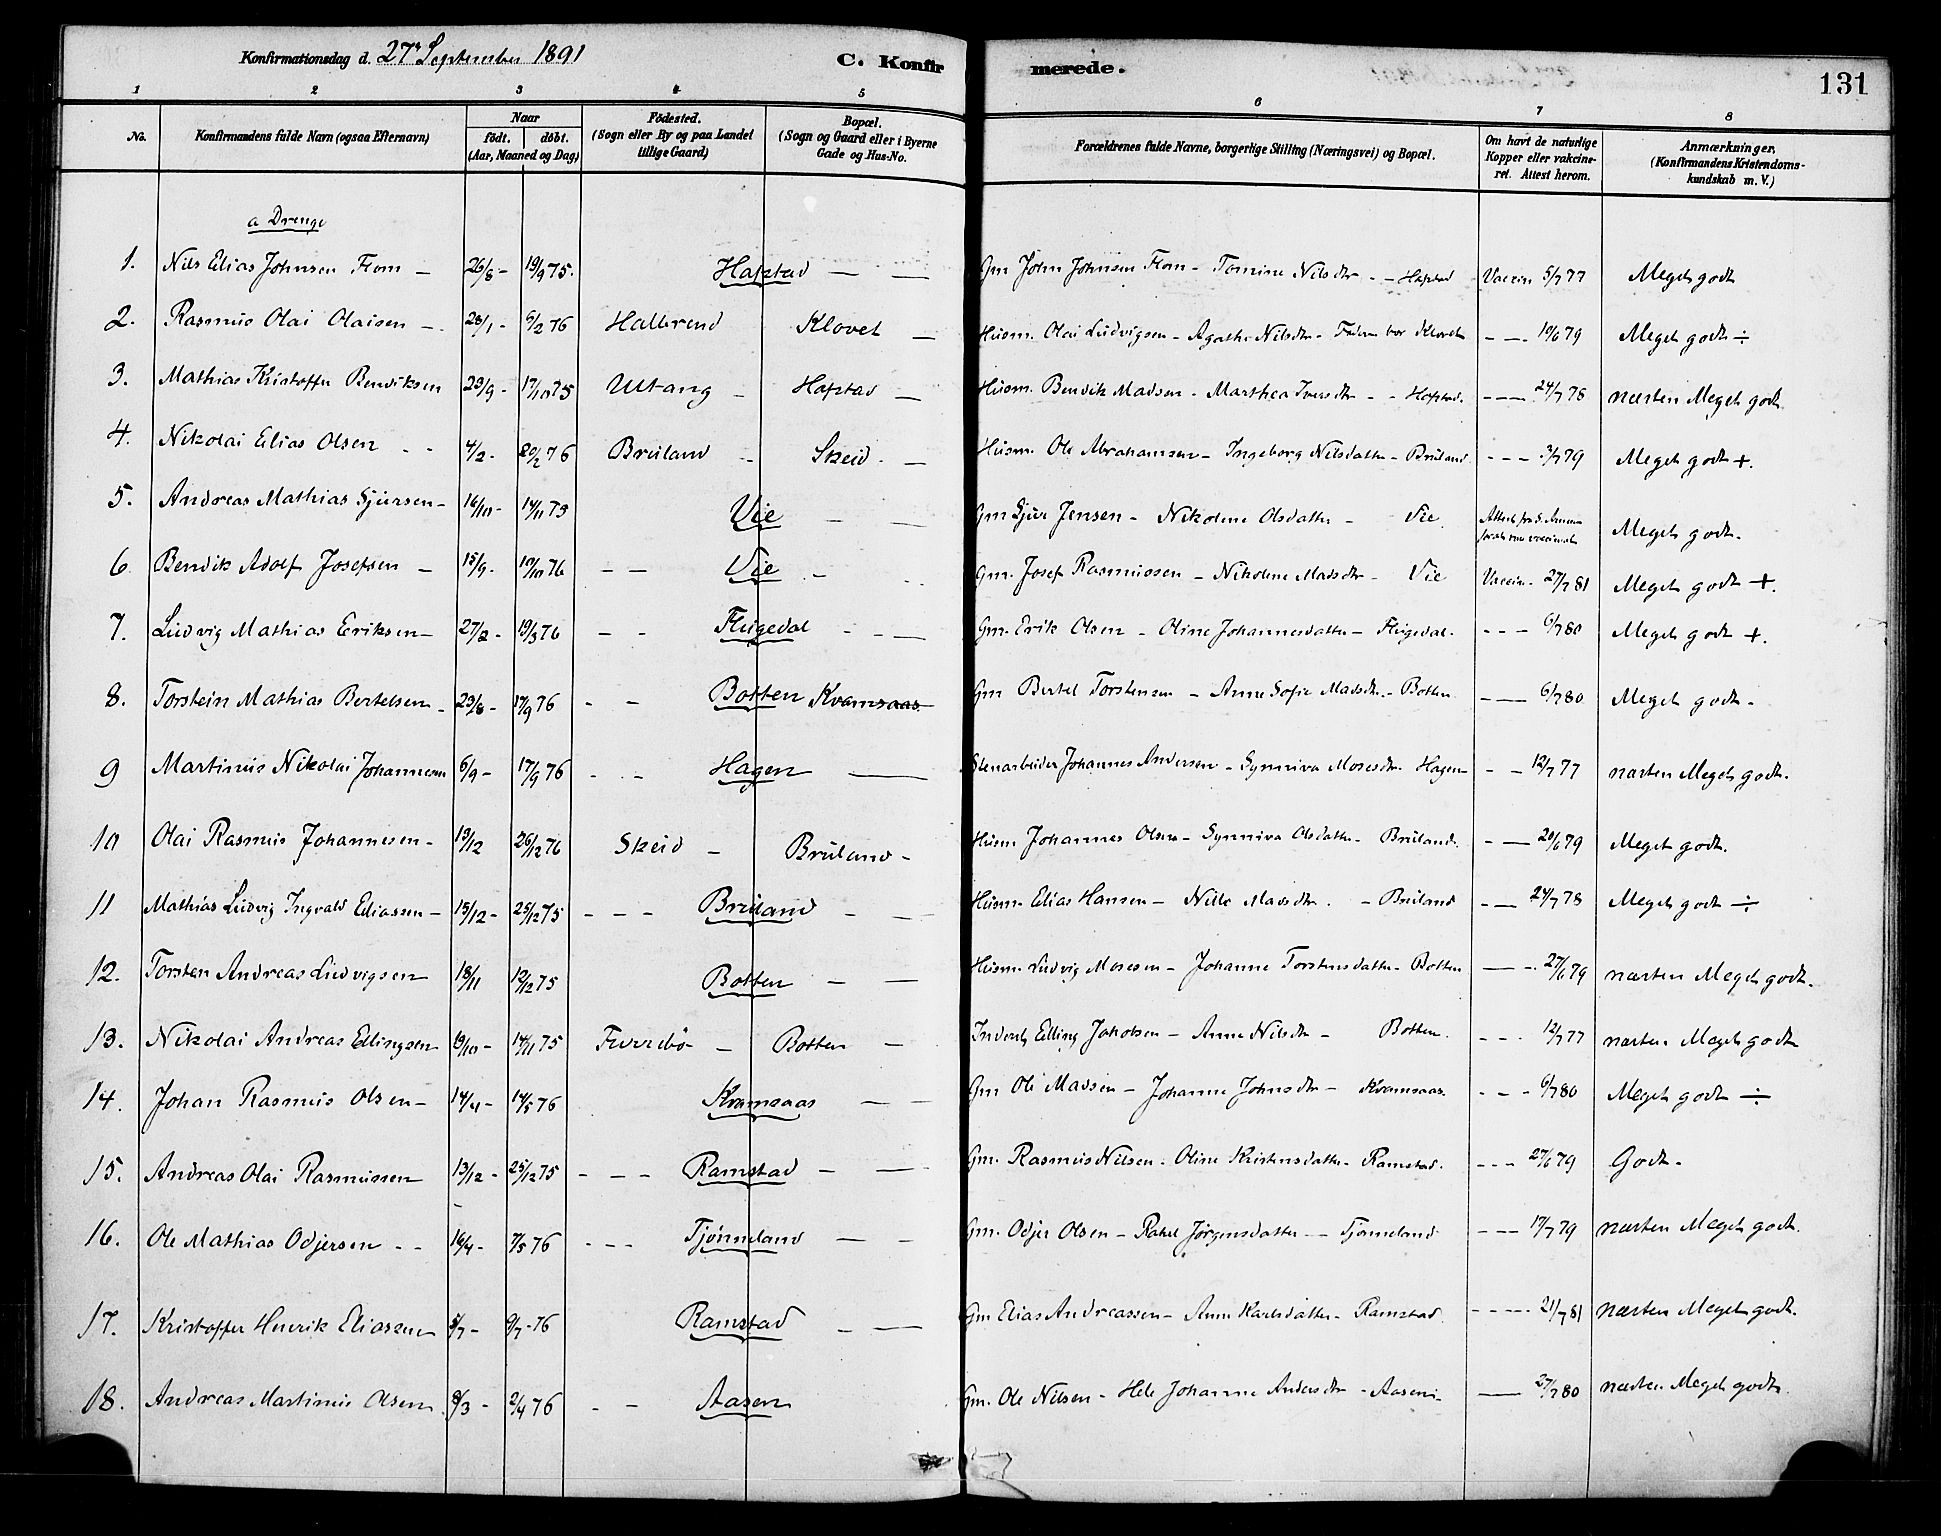 Konfirmationsdag d. 27de September 1891 C. Konfirmerede. 131
1 2 3 4 5 6 7 8
No. Konfirmandens fulde Navn (ogsaa Efternavn) Naar født. døbt. (Aar, Maaned og Dag) Fødested. (Sogn eller By og paa Landet tillige Gaard) Bopæl. (Sogn og Gaard eller i Byerne Gade og Hus-No. Forældrenes fulde Navne, borgerlige Stilling (Næringsvei) og Bopæl. Om havt de naturlige Kopper eller vakcineret. Attest herom. Anmærkninger. (Konfirmandens Kristendomskundskab m. V.)
a Drenge
1. Nils Elias Johnsen Flom - 26/8 - 19/9 75. Hafstad — — Gm John Johnsen Flom - Tomine Nilsdtr - - Hafstad Vaccin 5/7 77 Meget godt
2. Rasmus Olai Olaisen - 28/1 - 6/2 76 Halbrend Klovet — Husm. Olai Ludvigsen - Agathe Nilsdtr - Faderen bor Klovet - — 19/6 79 Meget godt ÷
3. Mathias Kristoffer Bendiksen 23/9 - 17/10 75 Utang - Hafstad — Husm. Bendik Madsen - Marthea Iversdtr - - Hafstad. - — 24/7 78 næsten Meget godt
4. Nikolai Elias Olsen - - 4/2 - 20/2 76 Bruland - Skeid - — Husm. Ole Abrahamsen - Ingeborg Nilsdatter - Bruland - - - 3/7 79 Meget godt +.
5. Andreas Mathias Sjursen - 16/10 - 14/11 75 Vie - — Gm Sjur Jensen - Nikoline Olsdatter - Vie Meget godt.
6 Bendik Adolf Josefsen - 15/9 - 10/10 76 - - Vie - - Gm. Josef Rasmussen - Nikoline Madsdtr - Vie Vaccin - 27/7 81 Meget godt +.
7. Ludvig Mathias Eriksen - 27/2 - 19/3 76 - - Flugedal - - — Gm. Erik Olsen - Oline Johannesdatter - Flugedal - - - - 6/7 80 Meget godt +.
8. Torstein Mathias Bertelsen - 23/8 - 17/9 76 - - Botten Kvamsaas Gm Bertel Torstensen - Anne Sofie Madsdtr. - Botten - — 6/7 80 Meget godt -
9 Martinus Nikolai Johannesen 6/9 - 17/9 76 - - Hagen — Stenarbeider Johannes Andersen - Synniva Mosesdtr. Hagen - - - 12/7 77 næsten Meget godt.
10 Olai Rasmus Johannesen - 13/12 26/12 76 Skeid - Bruland - Husm Johannes Olsen - Synniva Olsdatter - Bruland. - — 20/6 79 Meget godt.
11 Mathias Ludvig Ingvald Eliassen - 15/12 - 25/12 75 - - - Bruland - — Husm. Elias Hansen - Nille Madsdtr. - Bruland - — 24/7 78 Meget godt ÷
12. Torsten Andreas Ludvigsen 18/11 12/12 75 Botten - — Husm. Ludvig Mosesen - Johanne Torstensdatter - Botten — - 27/6 79 næsten Meget godt.
13. Nikolai Andreas Ellingsen 19/10 - 14/11 75 Furrebø - Botten - Inderst Elling Jakobsen - Anne Nilsdtr - Botten. - - - 12/7 77 næsten Meget godt
14. Johan Rasmus Olsen - 14/4 - 14/5 76 Kvamsaas — — Gm Ole Madsen - Johanne Johnsdtr - Kvamsaas. - - - 6/7 80 Meget godt ÷
15. Andreas Olai Rasmussen 13/12 - 25/12 75 - - - Ramstad - — Gm. Rasmus Nilsen - Oline Kristensdatter - Ramstad. - - - 27/6 79 Godt -
16. Ole Mathias Odjersen - - 16/4 - 7/5 76 - - - Tjønneland — - Gm. Odjer Olsen - Rakel Jørgensdatter - - Tjønneland - - — 17/7 79 næsten Meget godt.
17. Kristoffer Henrik Eliassen 5/7 - 9/7 - 76 Ramstad - — Gm Elias Andreassen - Anne Karlsdatter - Ramstad. - - - - 21/7 81 næsten Meget godt.
18. Andreas Martinus Olsen 8/3 - 2/4 76 - - Aasen Gm. Ole Nilsen - Johanne Andersdtr - Aasen - — 27/7 80 næsten Meget godt.